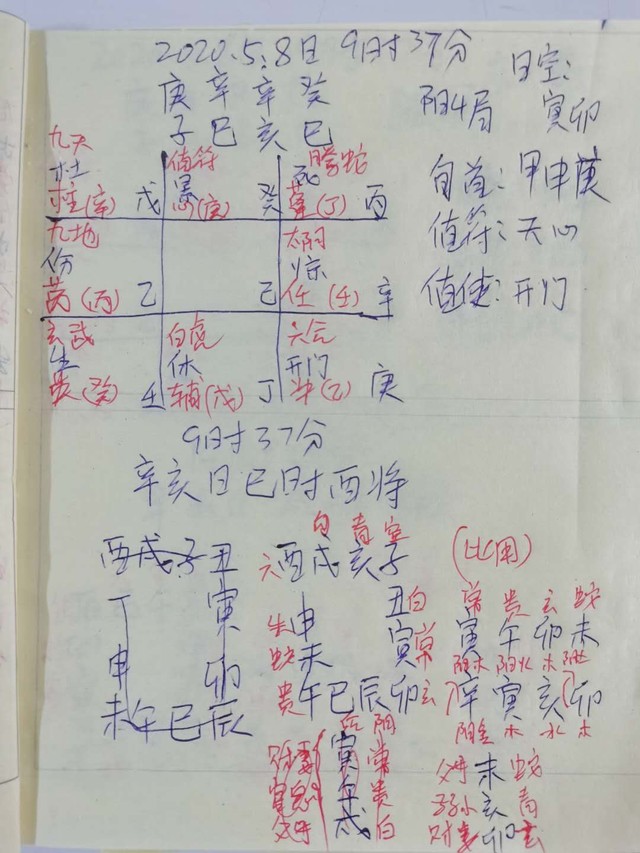 2020.5.8日 9时37分
日空:
庚 辛 辛 癸
子 巳 亥 巳
阳4局 寅卯
旬首: 甲申庚
值符: 天心
值使: 开门
九天 值符 螣蛇
杜 景 死
柱(辛) 戊 心(庚) 癸 蓬(丁) 丙
九地 太阴
伤 惊
芮(丙) 乙 己 任(壬) 辛
玄武 白虎 六合
生 休 开门
英(癸) 壬 辅(戊) 丁 冲(乙) 庚
9时37分
辛亥日巳时酉将
勾 青 空
酉戌子丑 六酉戌亥子 (比用)
丑白 常 贵 玄 蛇
丁 寅 朱申 寅常 寅 午 卯 未
申 卯 蛇未
阳木 阳火 木
未午巳辰 贵午巳辰卯玄 辛 寅 亥 卯
后 阴
阳金 木 水 木
寅 常 父母 未 蛇
午 贵 子孙 亥 青
父母 戌 白 卯 玄